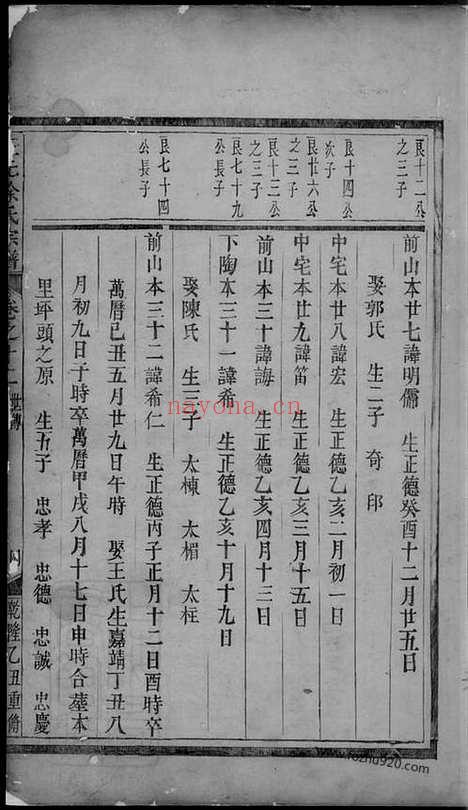 良十二公
之三子
良十四公
次子
良廿六公
之三子
良十三公
之三子
良七十九
公長子
良七十四
公長子
前山本廿七諱明儒 生正德癸酉十二月廿五日
娶郭氏 生二子 奇 印
中宅本廿八諱宏 生正德乙亥二月初一日
中宅本廿九諱笛 生正德乙亥三月十五日
前山本三十諱誨 生正德乙亥四月十三日
下陶本三十一諱希 生正德乙亥十月十九日
娶陳氏 生三子 太棟 太楣 太枉
前山本三十二諱希仁 生正德丙子正月十二日酉時卒
萬曆己丑五月廿九日午時 娶王氏生嘉靖丁丑八
月初九日子時卒萬曆甲戌八月十七日申時合塟本
里坪頭之原 生五子 忠孝 忠德 忠誠 忠慶
徐氏宗譜
卷之十二
世傳
乾隆乙丑重脩
nayona.cn
www.fozhu920.com